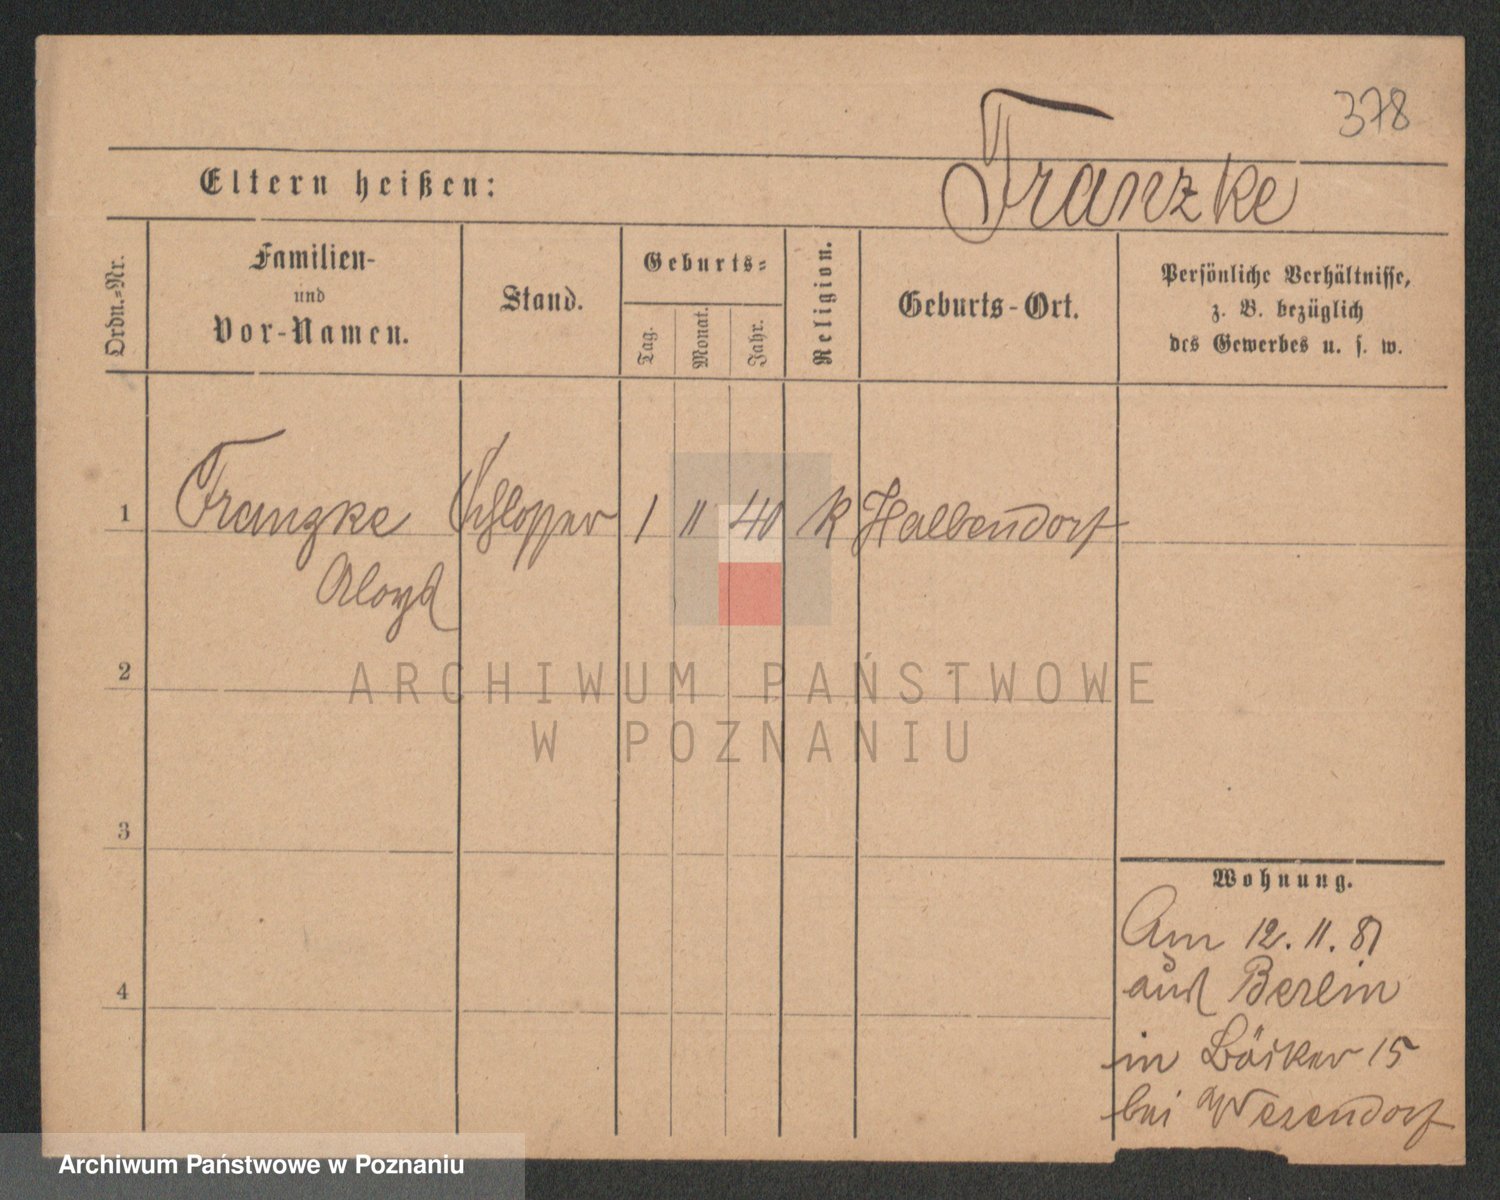 378
Eltern heißen:
Franzke
Ordn.=Nr.
Familien-
und
Vor-Namen.
Stand.
Geburts=
Tag.
Monat.
Jahr.
Religion.
Geburts-Ort.
Persönliche Verhältnisse,
z. B. bezüglich
des Gewerbes u. s. w.
1 Franzke Schlosser 1 11 40 K Halbendorf
Aloys
2
ARCHIWUM PAŃSTWOWE
W POZNANIU
3
Wohnung.
Am 12. 11. 81
aus Berlin
4
in 15
bei
Archiwum Państwowe w Poznaniu